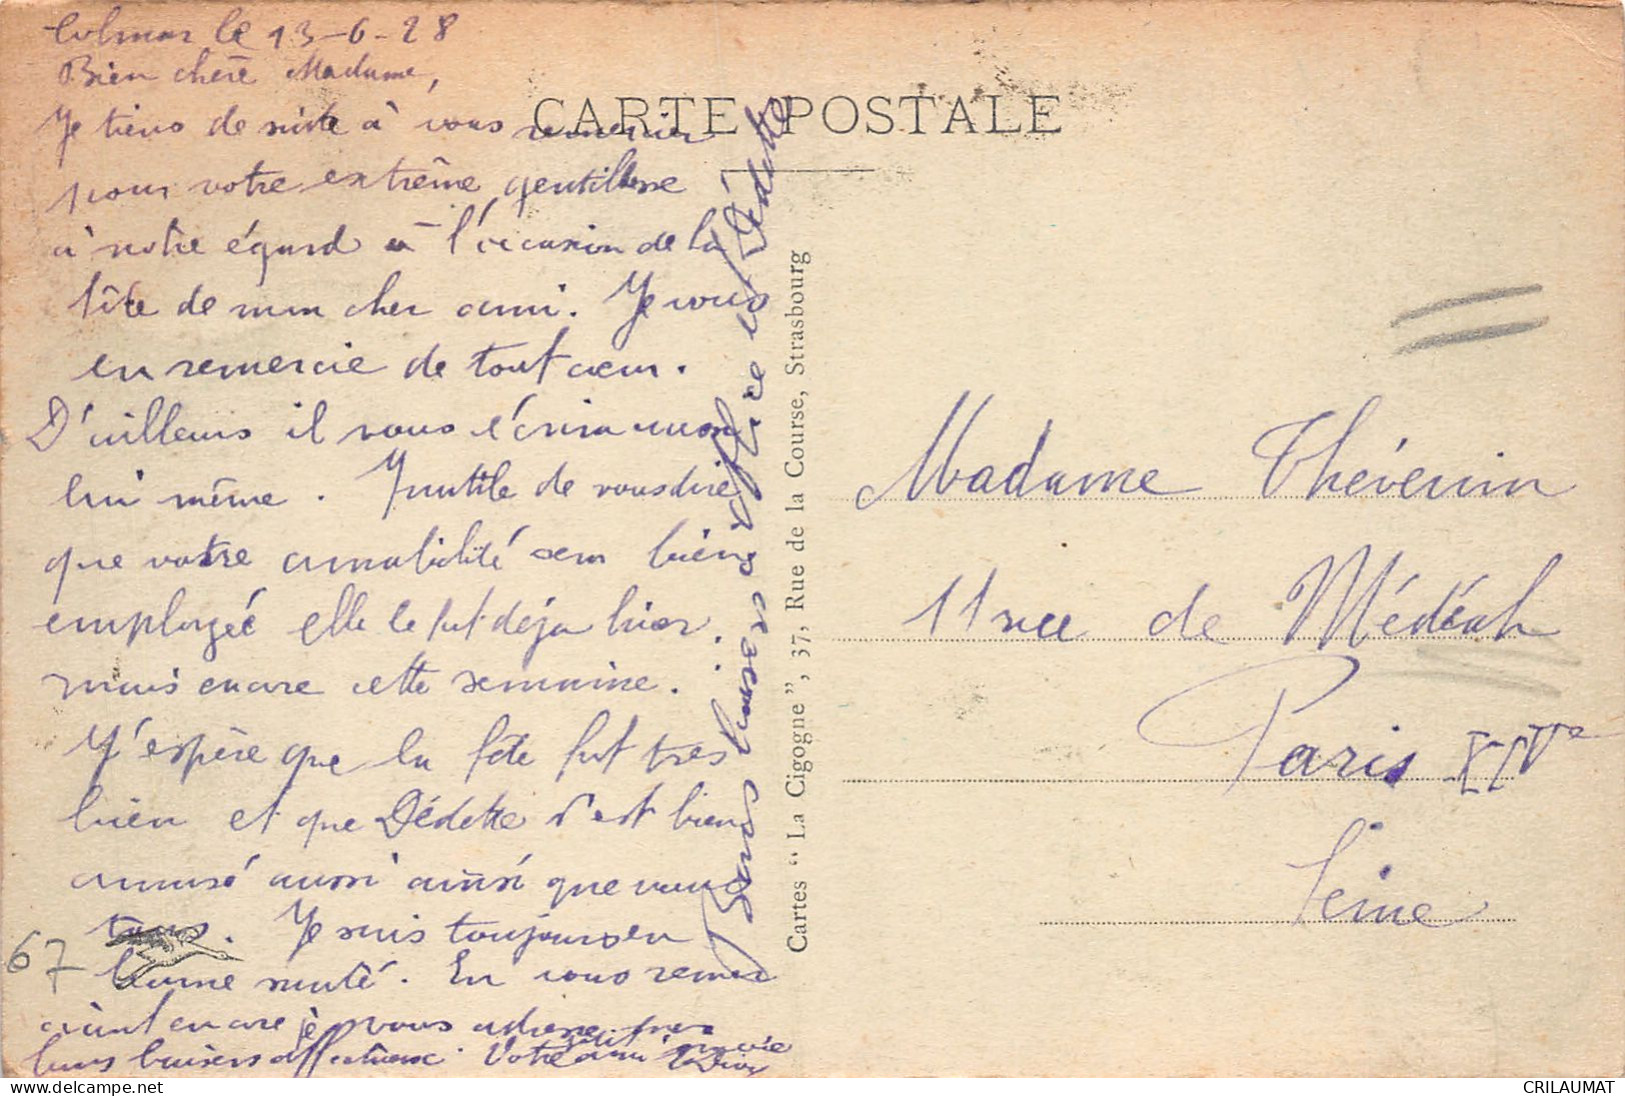 Colmar le 13-6-28
Bien chère Madame,
Je tiens de suite à vous remercier
pour votre extrême gentillesse
à notre égard à l'occasion de la
fête de mon cher ami. Je vous
en remercie de tout cœur.
D'ailleurs il vous écrira
lui même. Inutile de vous dire
que votre amabilité sera bien
employée elle le fut déja hier.
mais encore cette semaine.
J'espère que la fête fut tres
bien et que Dédette s'est bien
amusé aussi ainsi que vous
tous. Je suis toujours en
bonne santé. En vous remer
ciant encore je vous adresse mes
bons baisers affectueux. Votre petit ami
Gros baisers à Dédette
CARTE POSTALE
Cartes "La Cigogne", 37, Rue de la Course, Strasbourg
Madame Thévenin
11 rue de Médéah
Paris XIVe
Seine
67
CRILAUMAT
www.delcampe.net